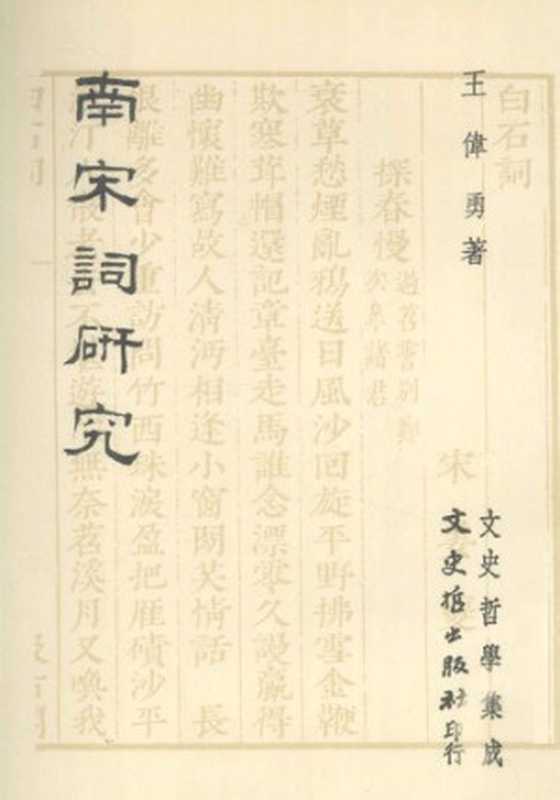 王偉勇著
文史哲學集成
文史哲出版社印行
南宋詞研究
白石詞
宋
探春慢
衰草愁煙亂鴉送日風沙回旋平野拂雪金鞭
欺寒茸帽還記章臺走馬誰念漂零久謾贏得
幽懷難寫故人清沔相逢小窗閑共情話 長
離多會少重訪問竹西珠淚盈把雁磧沙平
無奈苕溪月又喚我